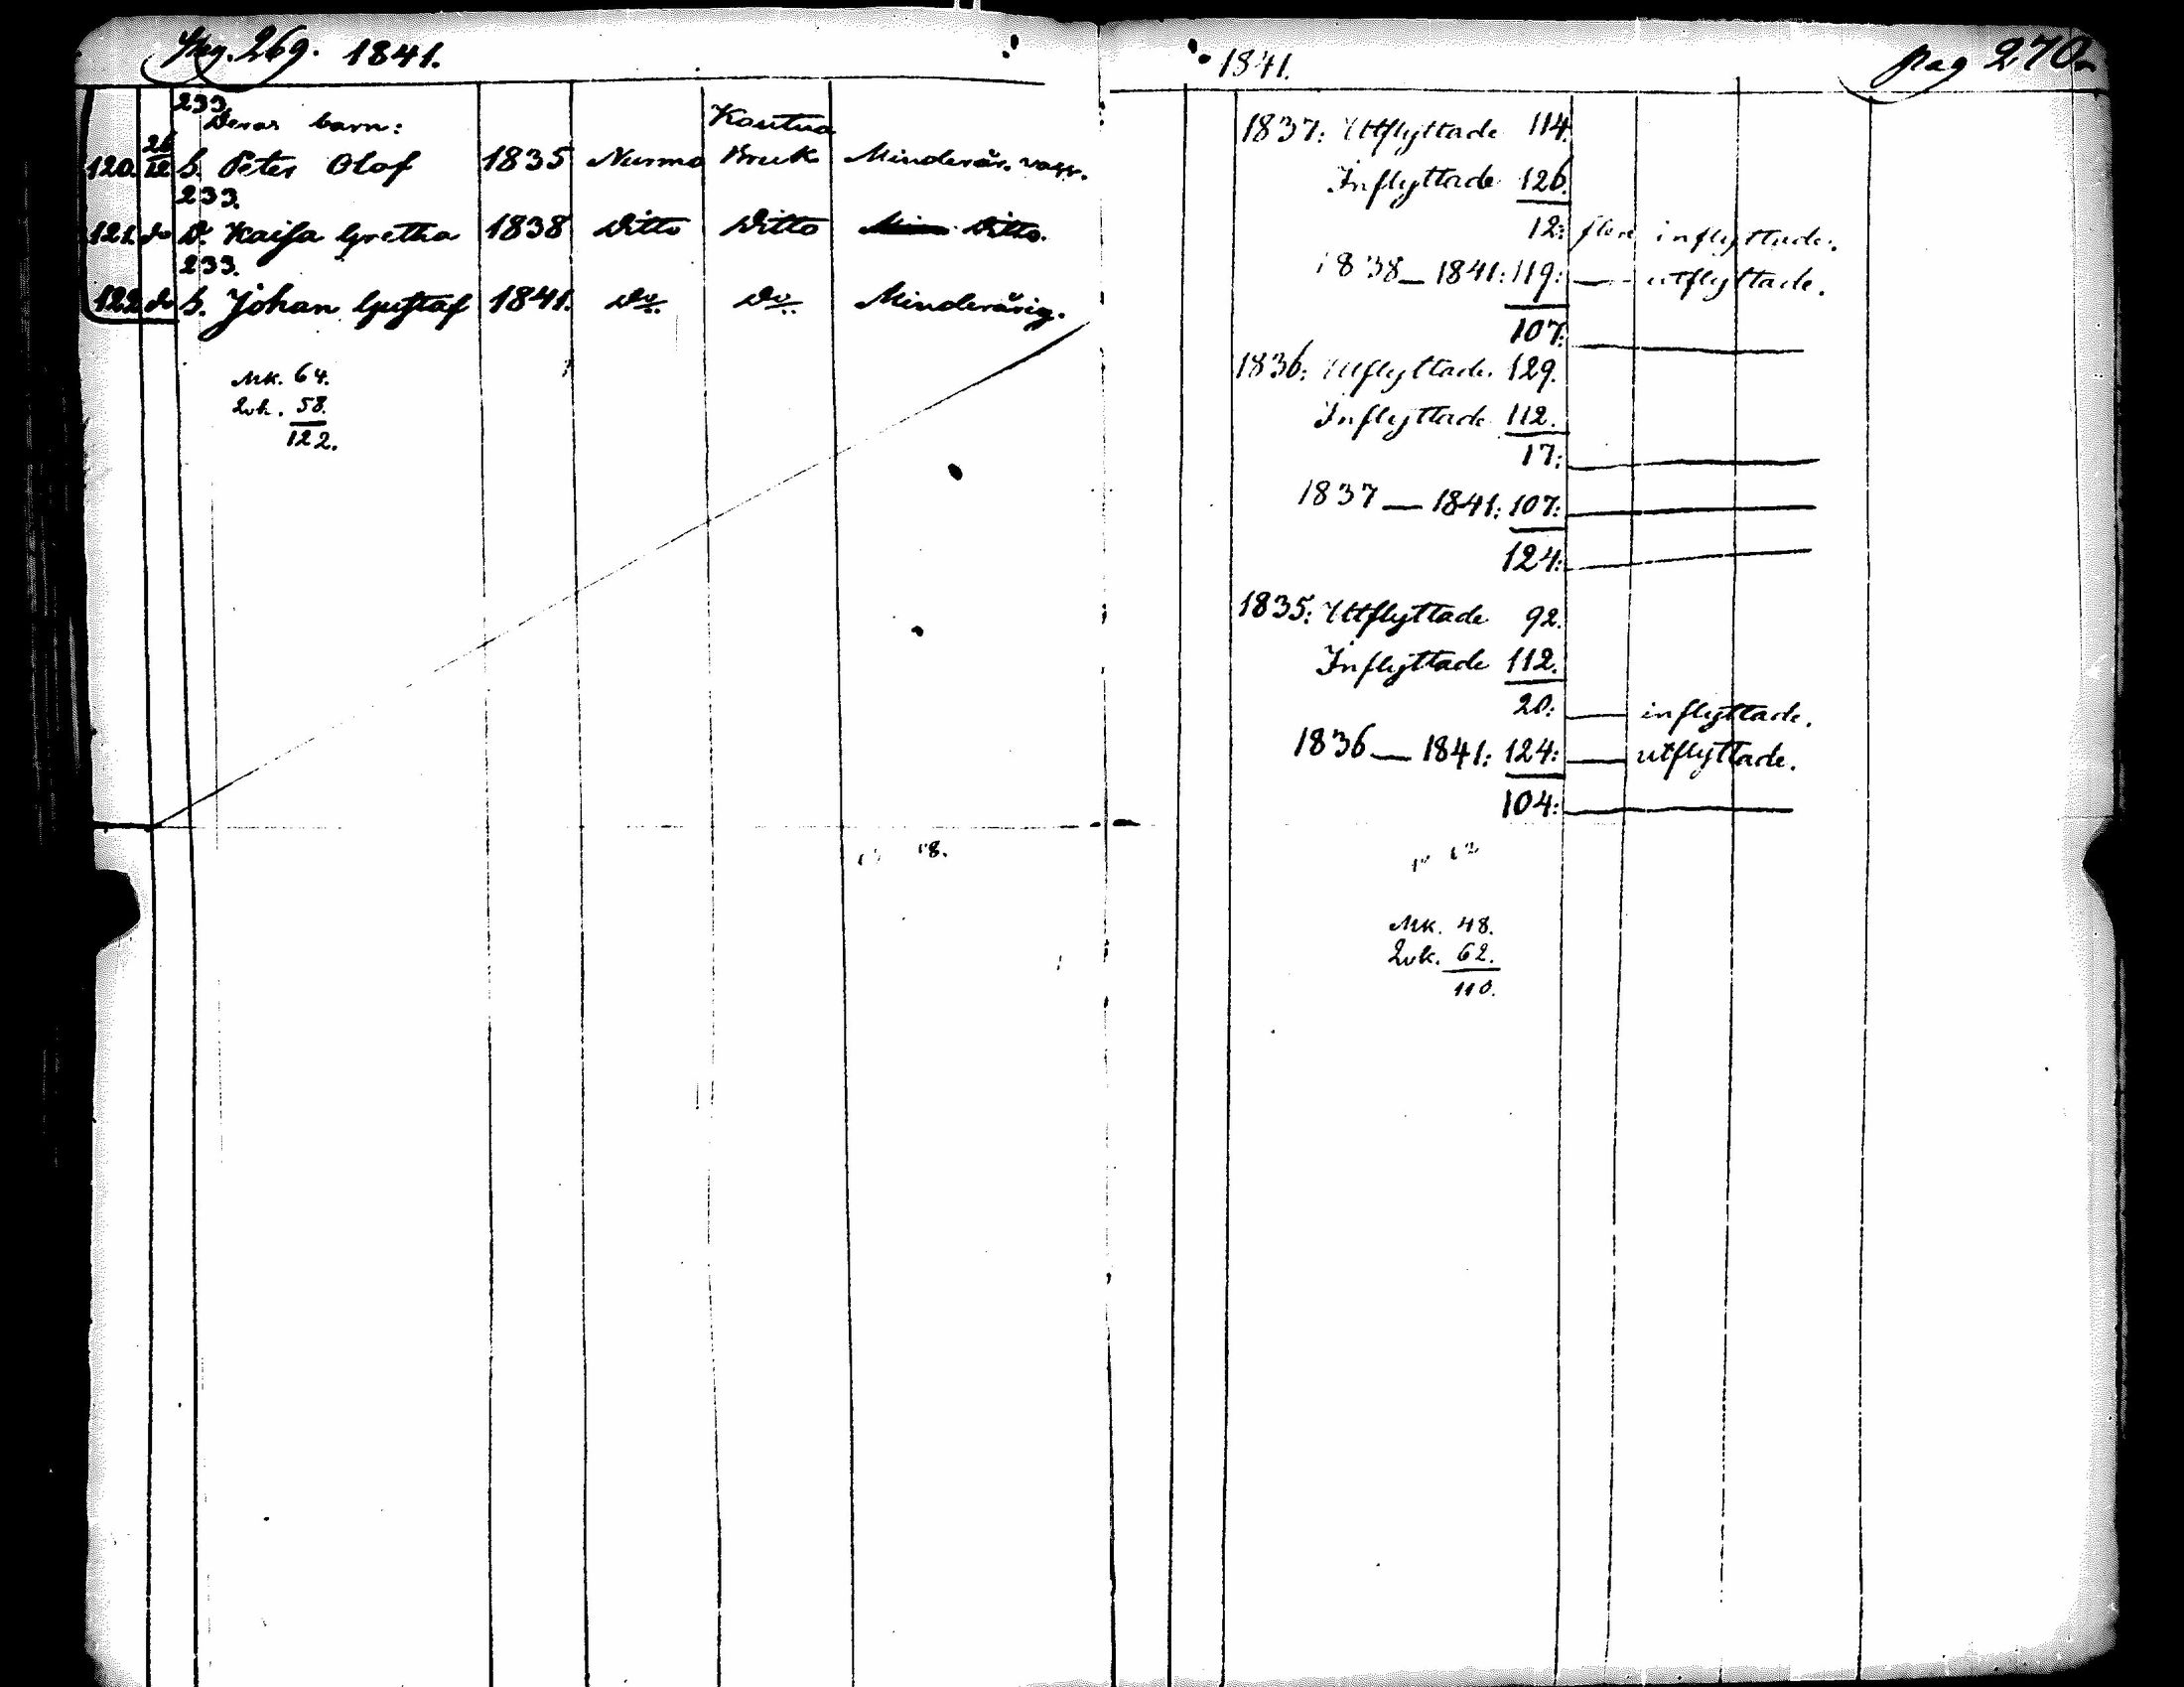 Pag. 269. 1841.
233.
Deras barn: Kautua
120. 26/12 S. Peter Olof 1835 Nurmo Bruk Minderår. vacc.
233.
121. do D. Kaisa Gretha 1838 Ditto Ditto Ditto.
233.
122. do S. Johan Gustaf 1841. Do Do Minderårig.
Mk. 64.
Qvk. 58.
122.
1841. pag 270.
1837: Utflyttade 114.
Inflyttade 126.
12: flere inflyttade.
1838 — 1841: 119: — utflyttade.
107:
1836: Utflyttade 129.
Inflyttade 112.
17:
1837 — 1841: 107:
124:
1835: Utflyttade 92.
Inflyttade 112.
20: — inflyttade.
1836 — 1841: 124: — utflyttade.
104:
Mk. 48.
Qvk. 62.
110.